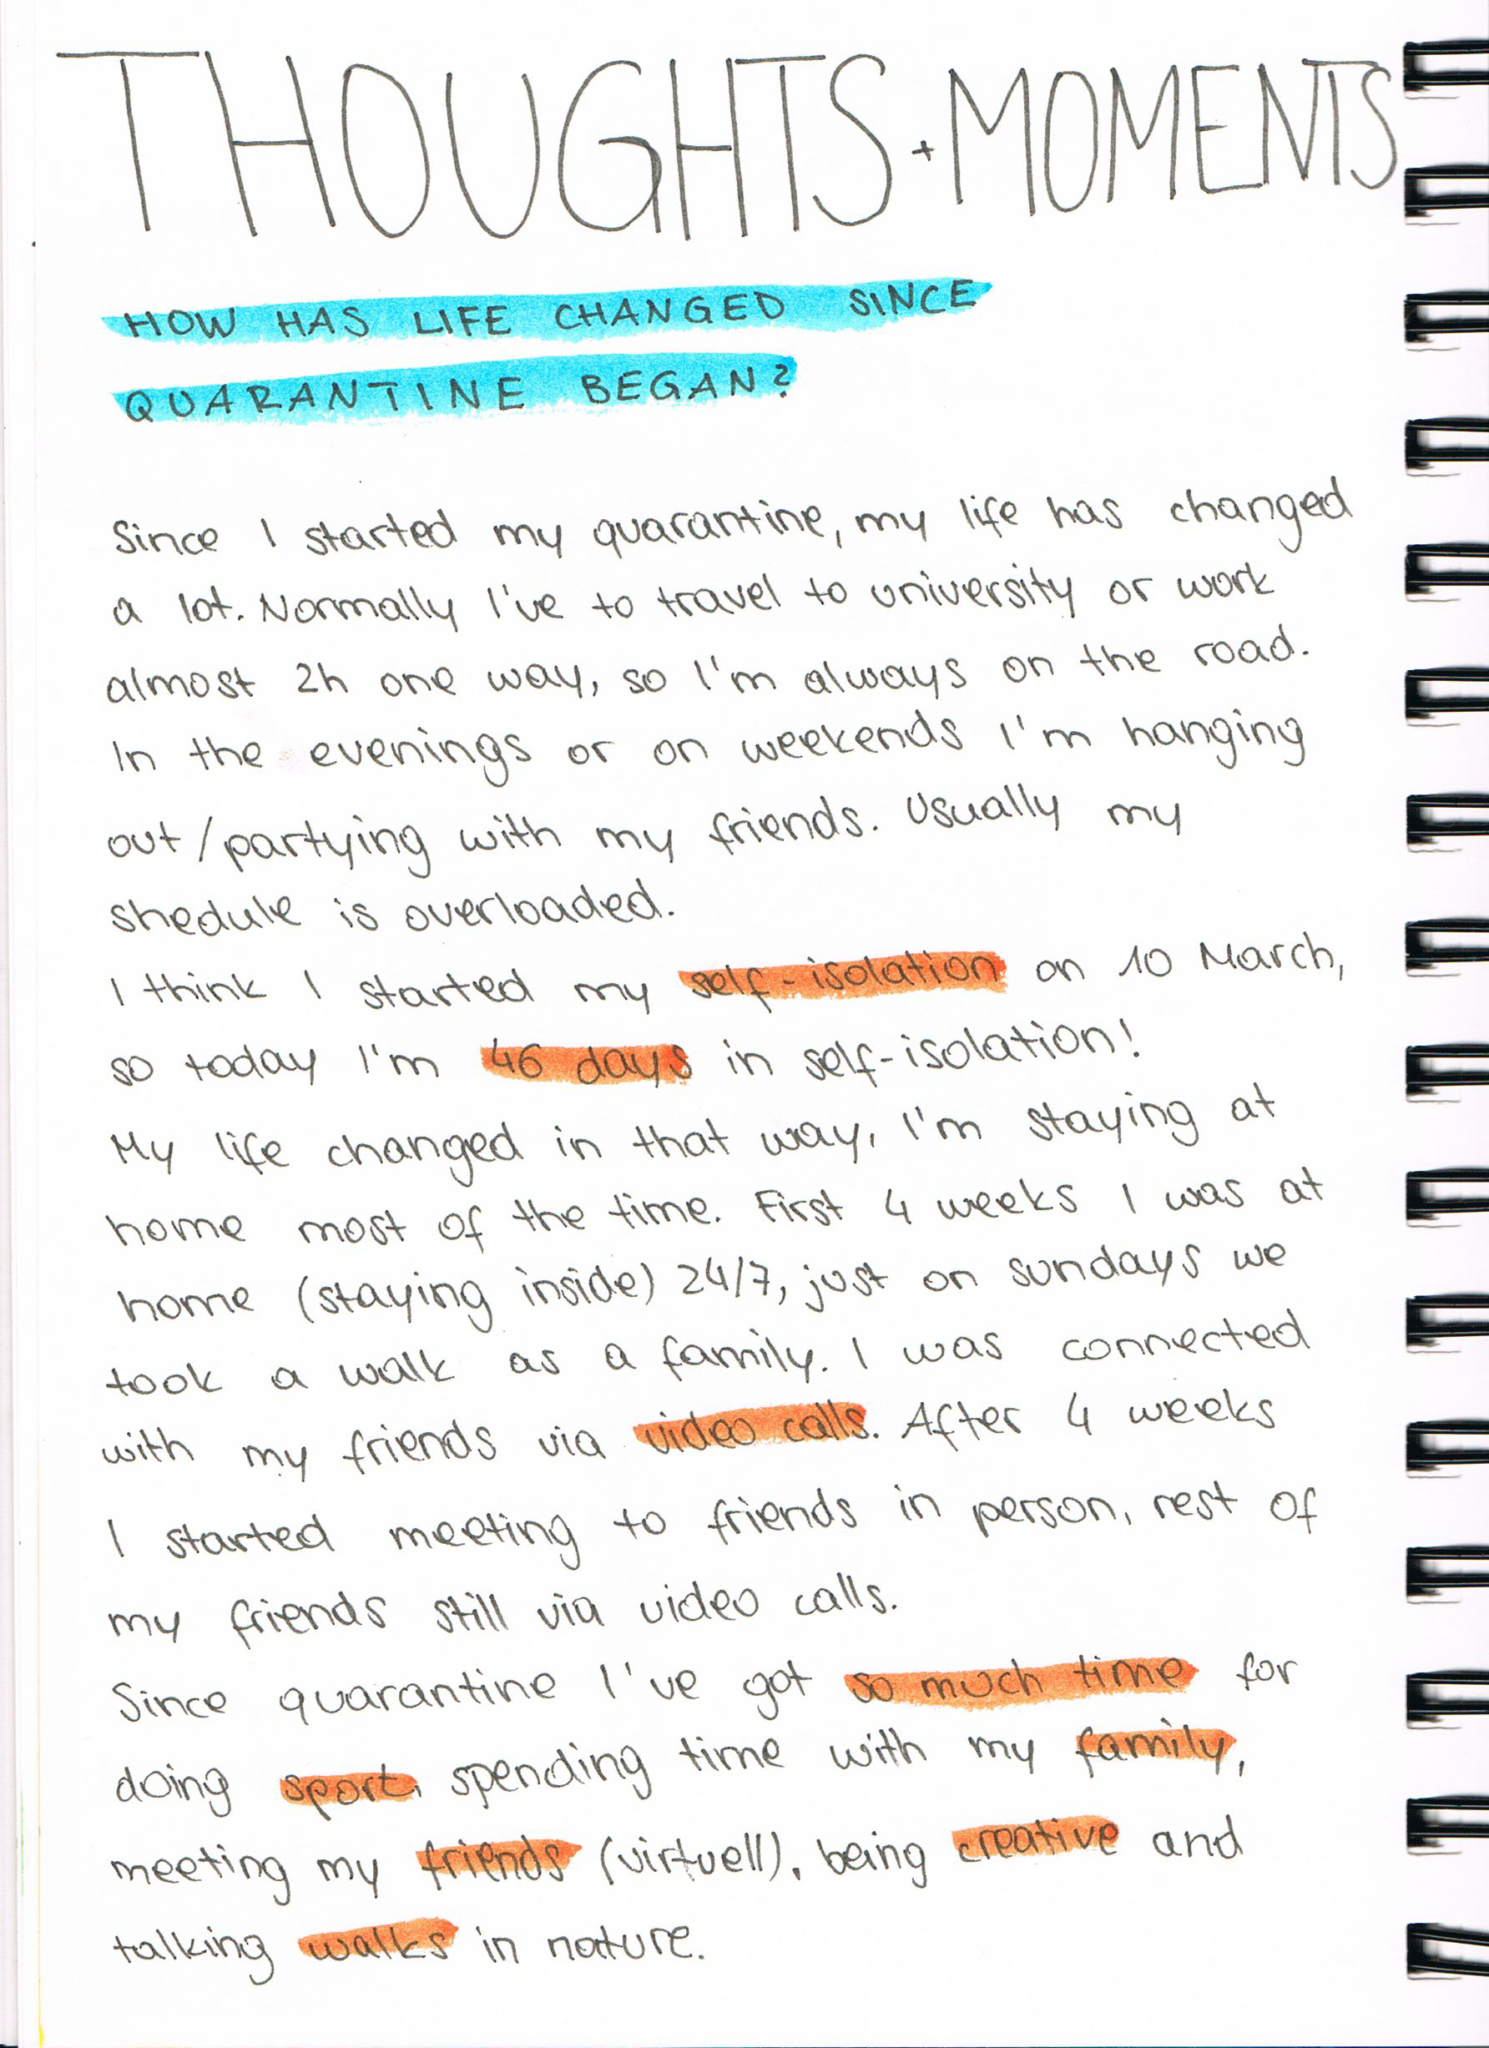 THOUGHTS + MOMENTS
HOW HAS LIFE CHANGED SINCE
QUARANTINE BEGAN?
Since I started my quarantine, my life has changed
a lot. Normally I've to travel to university or work
almost 2h one way, so I'm always on the road.
In the evenings or on weekends I'm hanging
out/partying with my friends. Usually my
shedule is overloaded.
I think I started my self-isolation on 10 March,
so today I'm 46 days in self-isolation!
My life changed in that way, I'm staying at
home most of the time. First 4 weeks I was at
home (staying inside) 24/7, just on sundays we
took a walk as a family. I was connected
with my friends via video calls. After 4 weeks
I started meeting to friends in person, rest of
my friends still via video calls.
Since quarantine I've got so much time for
doing sport, spending time with my family,
meeting my friends (virtuell), being creative and
talking walks in nature.